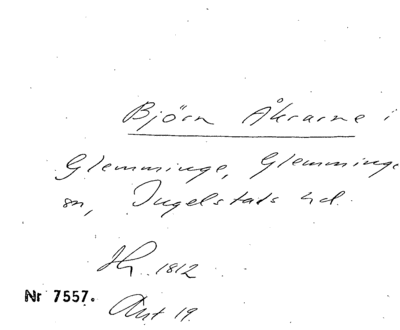 Björn Åkrarne i
Glemminge, Glemminge
sn, Ingelstads hd.
Hh. 1812
Nr 7557.
Ant 19.